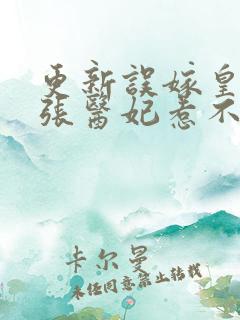 更新誤嫁皇
張醫妃惹不
卡尔曼
未经同意禁止转载